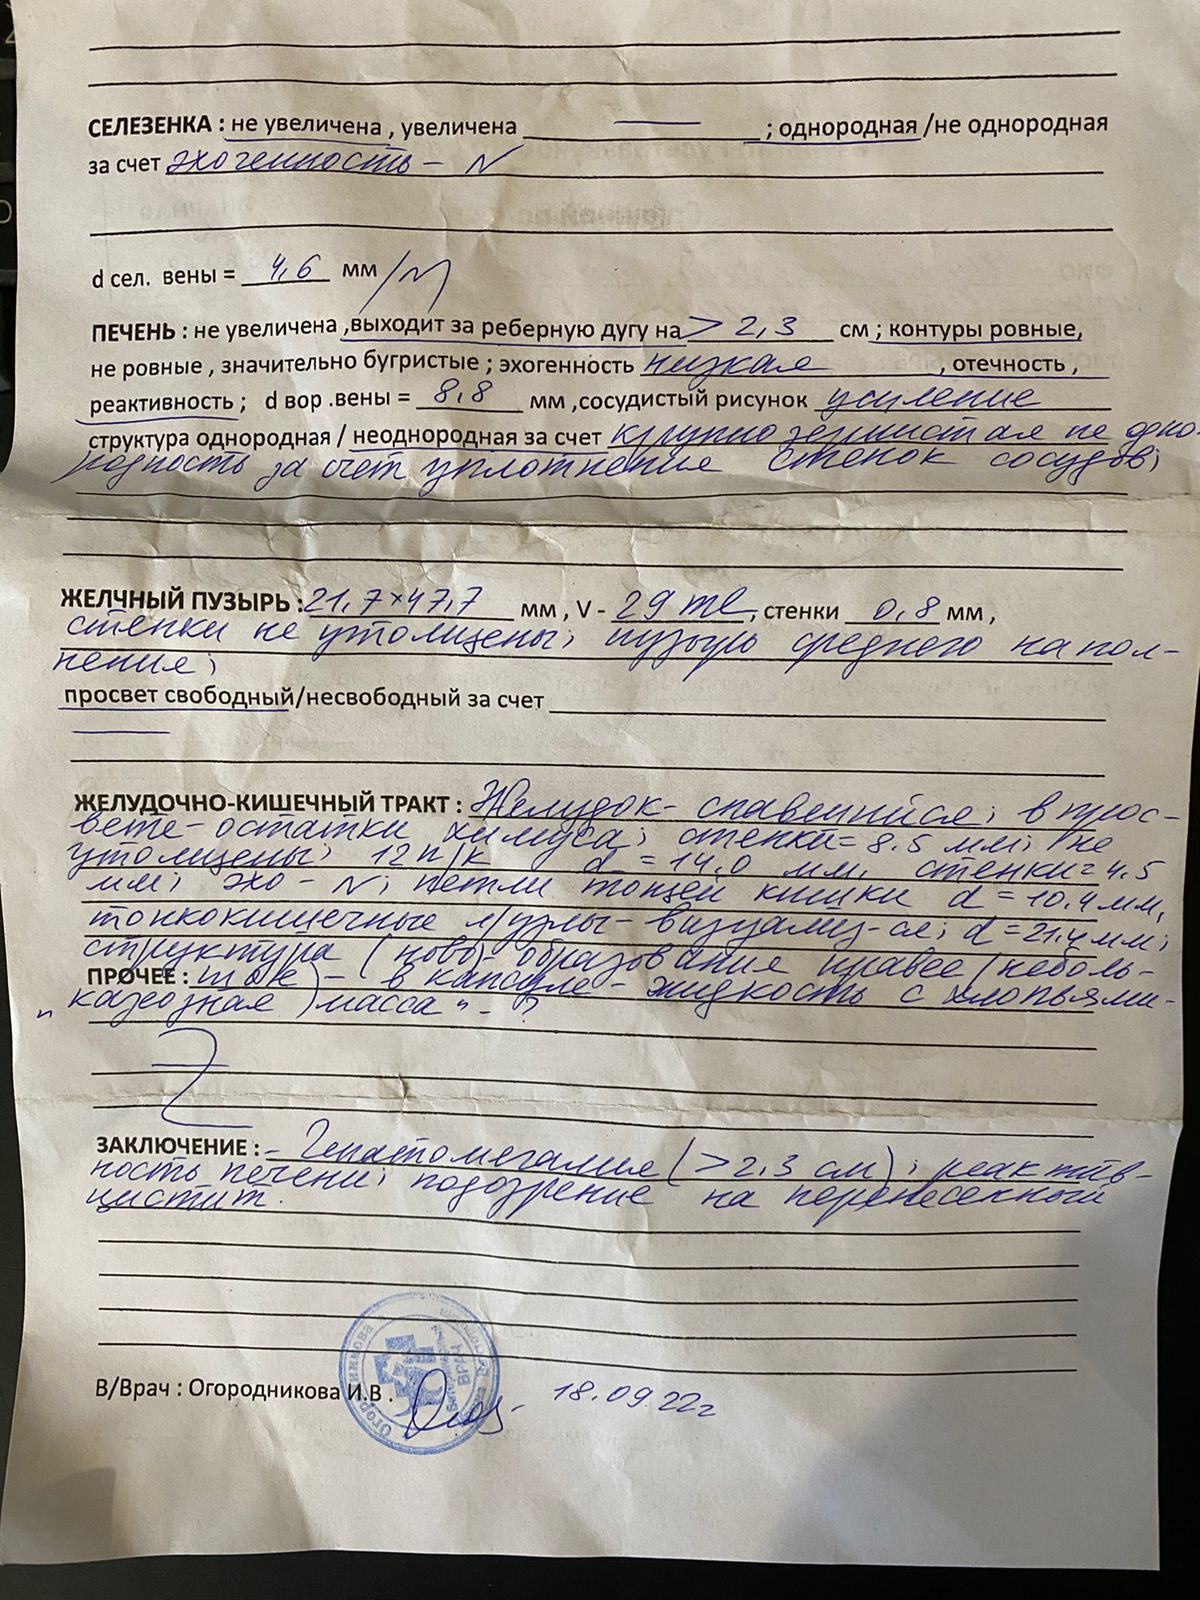 СЕЛЕЗЕНКА : не увеличена , увеличена ; однородная /не однородная
за счет эхогенность - N
d сел. вены = 4,6 мм /N
ПЕЧЕНЬ : не увеличена ,выходит за реберную дугу на > 2,3 см ; контуры ровные,
не ровные , значительно бугристые ; эхогенность низкая , отечность ,
реактивность ; d вор .вены = 8,8 мм ,сосудистый рисунок усиление
структура однородная / неоднородная за счет крупнозернистая не одно-
родность за счет уплотнение стенок сосудов;
ЖЕЛЧНЫЙ ПУЗЫРЬ : 21,7×47,7 мм , V - 29 ml , стенки 0,8 мм ,
стенки не утолщены; пузырь среднего напол-
нения;
просвет свободный/несвободный за счет
ЖЕЛУДОЧНО-КИШЕЧНЫЙ ТРАКТ : Желудок - спавшийся; в прос-
вете - остатки химуса; стенки = 8.5 мм; не
утолщены; 12 п/к d = 14,0 мм, стенки = 4.5
мм; эхо - N; петли тощей кишки d = 10.4 мм,
тонкокишечные л/узлы - визуализ-ся; d = 21,4 мм;
структура (ново) образования правее (неболь-
ПРОЧЕЕ : в капсуле - жидкость с хлопьями -
"казеозная масса" - ?
ЗАКЛЮЧЕНИЕ : - Гепатомегалия ( > 2,3 см); реактив-
ность печени; подозрение на перенесенный
цистит.
В/Врач : Огородникова И.В . 18.09.22г
Огородникова
ВРАЧ